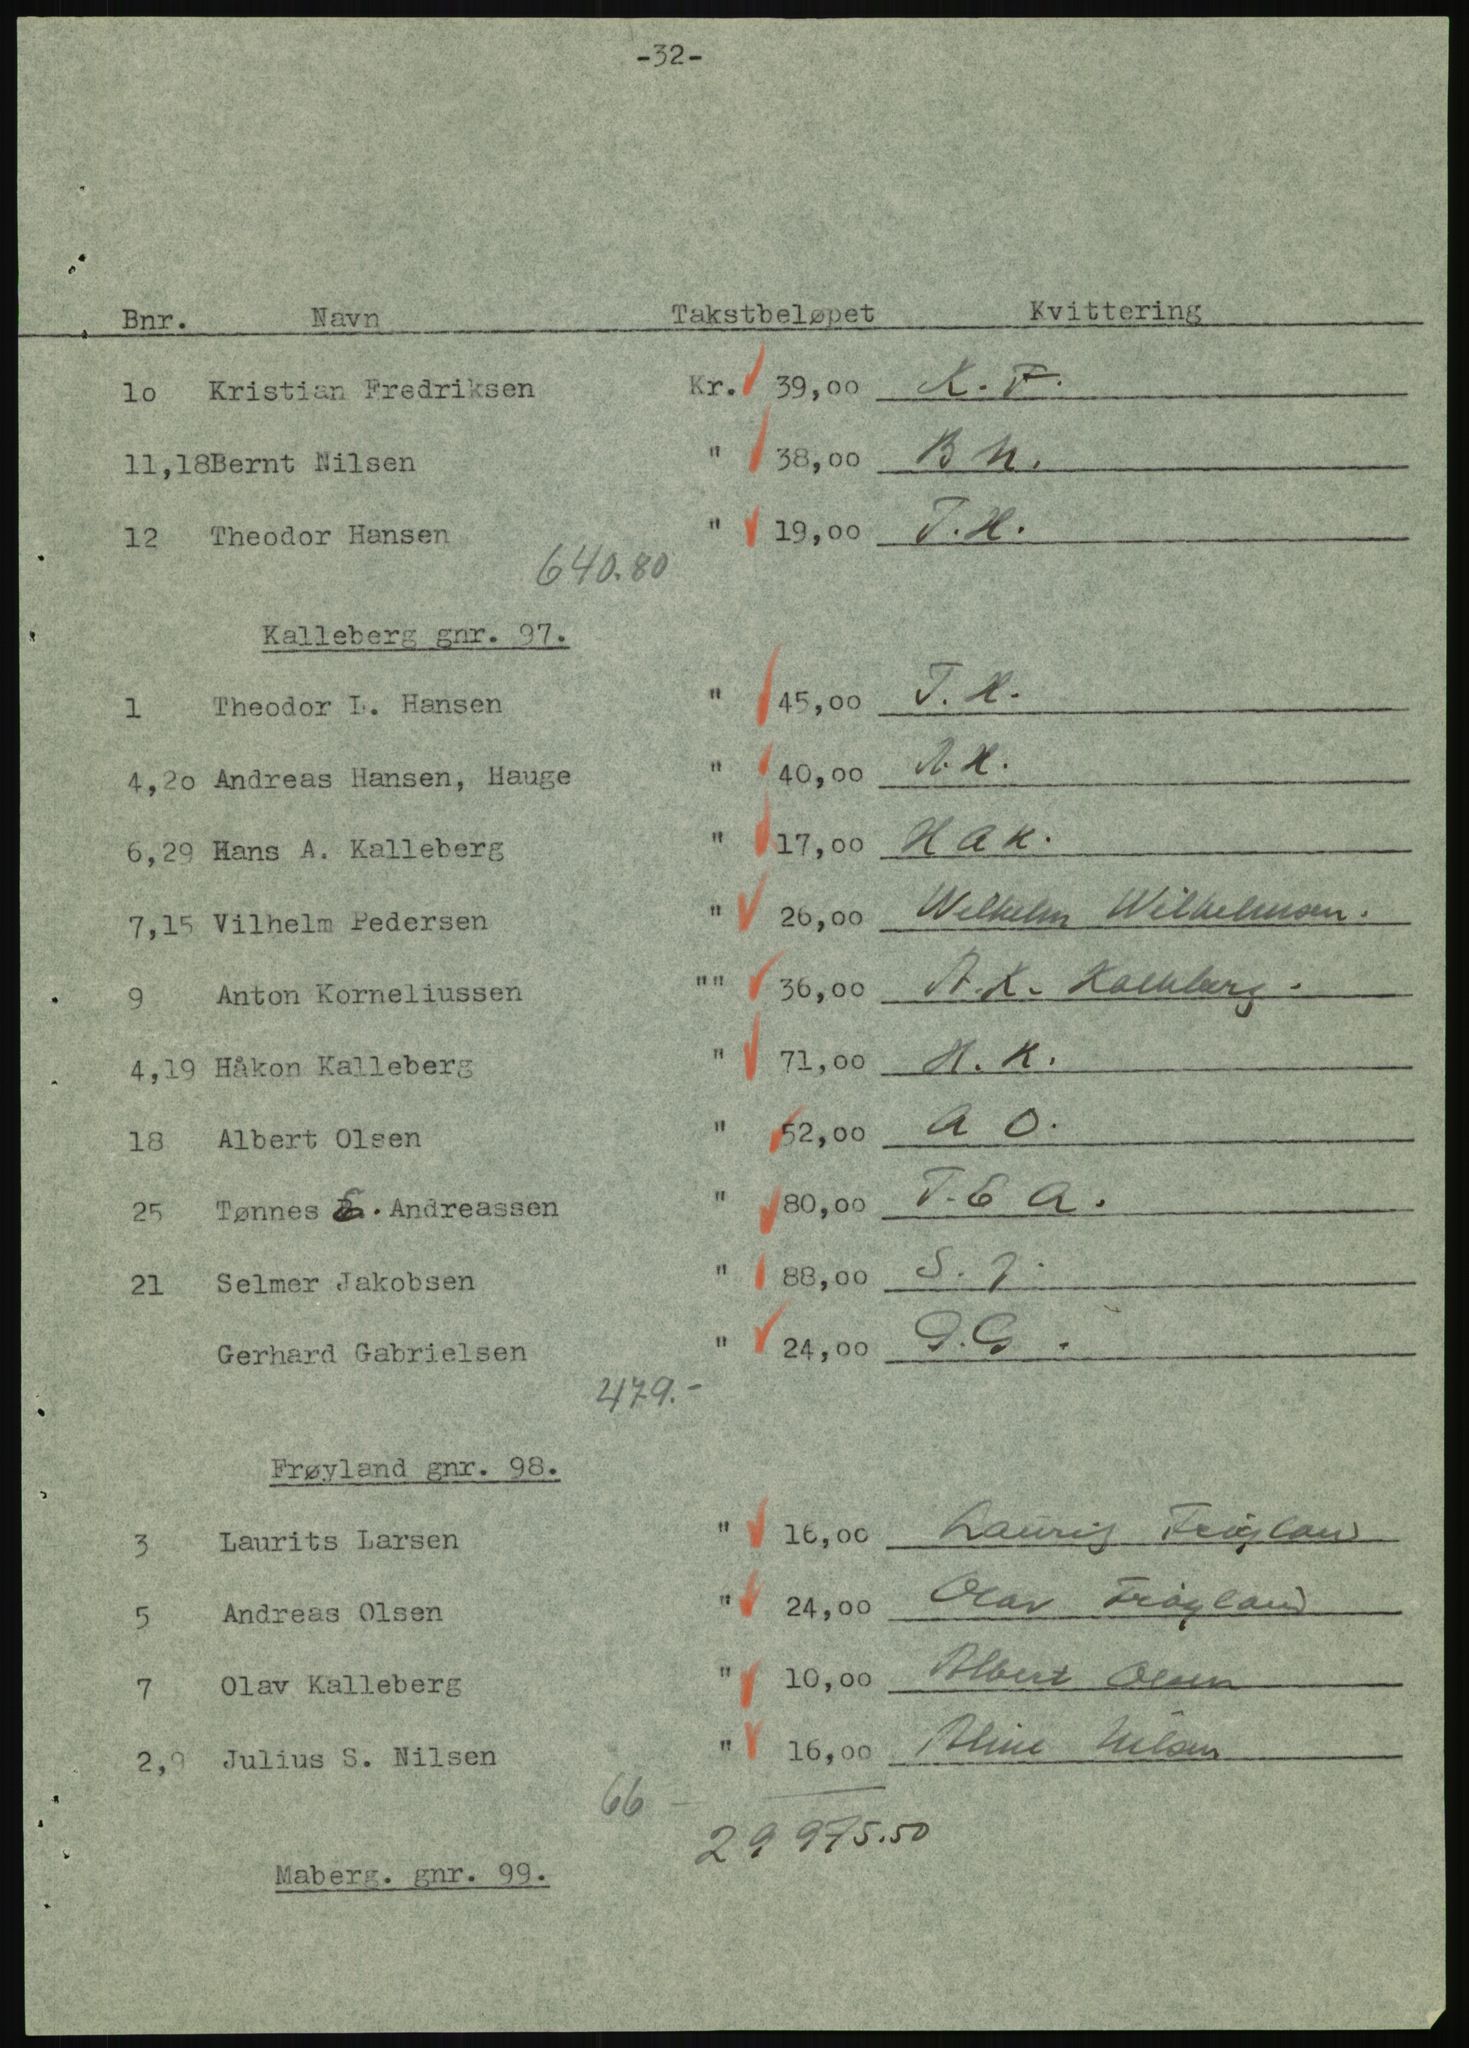 -32-
Bnr. Navn Takstbeløpet Kvittering
1o Kristian Fredriksen Kr. 39,00 K. F.
11,18Bernt Nilsen " 38,00 B N.
12 Theodor Hansen " 19,00 T. H.
640.80
Kalleberg gnr. 97.
1 Theodor L. Hansen " 45,00 T. H.
4,2o Andreas Hansen, Hauge " 40,00 A. H.
6,29 Hans A. Kalleberg " 17,00 H A K.
7,15 Vilhelm Pedersen " 26,00 Wilhelm Wilhelmsen.
9 Anton Korneliussen "" 36,00 A. K. Kalleberg.
4,19 Håkon Kalleberg " 71,00 H. K.
18 Albert Olsen " 52,00 A O.
25 Tønnes E. Andreassen " 80,00 T. E A.
21 Selmer Jakobsen " 88,00 S. J.
Gerhard Gabrielsen " 24,00 G. G.
479.-
Frøyland gnr. 98.
3 Laurits Larsen " 16,00 Frøyland
5 Andreas Olsen " 24,00 Olav Frøyland
7 Olav Kalleberg " 10,00 Albert Olsen
2,9 Julius S. Nilsen " 16,00 Nilsen
66 -
29 975.50
Maberg. gnr. 99.